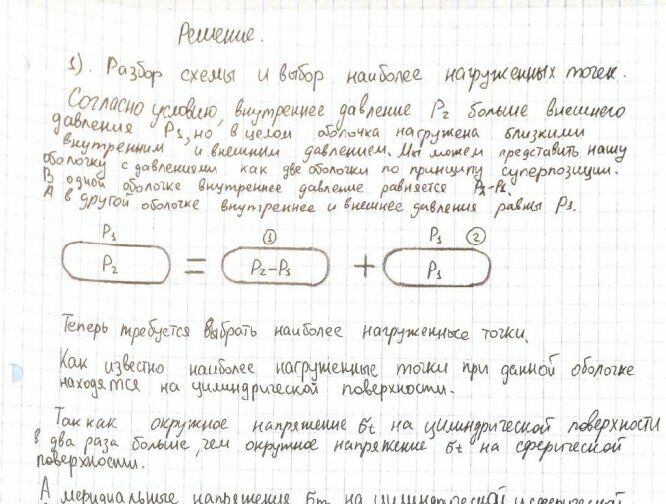 Решение.
1). Разбор схемы и выбор наиболее нагруженных точек.
Согласно условию, внутреннее давление P₂ больше внешнего
давления P₁, но в целом оболочка нагружена близкими
внутренним и внешним давлением. Мы можем представить нашу
оболочку с давлениями как две оболочки по принципу суперпозиции.
В одной оболочке внутреннее давление равняется P₂-P₁.
А в другой оболочке внутреннее и внешнее давления равны P₁.
P₁ ① P₁ ②
P₂ = P₂-P₁ + P₁
Теперь требуется выбрать наиболее нагруженные точки.
Как известно наиболее нагруженные точки при данной оболочке
находятся на цилиндрической поверхности.
Так как окружное напряжение σt на цилиндрической поверхности
в два раза больше, чем окружное напряжение σt на сферической
поверхности.
А меридиальные напряжения σm на цилиндрической и сферической